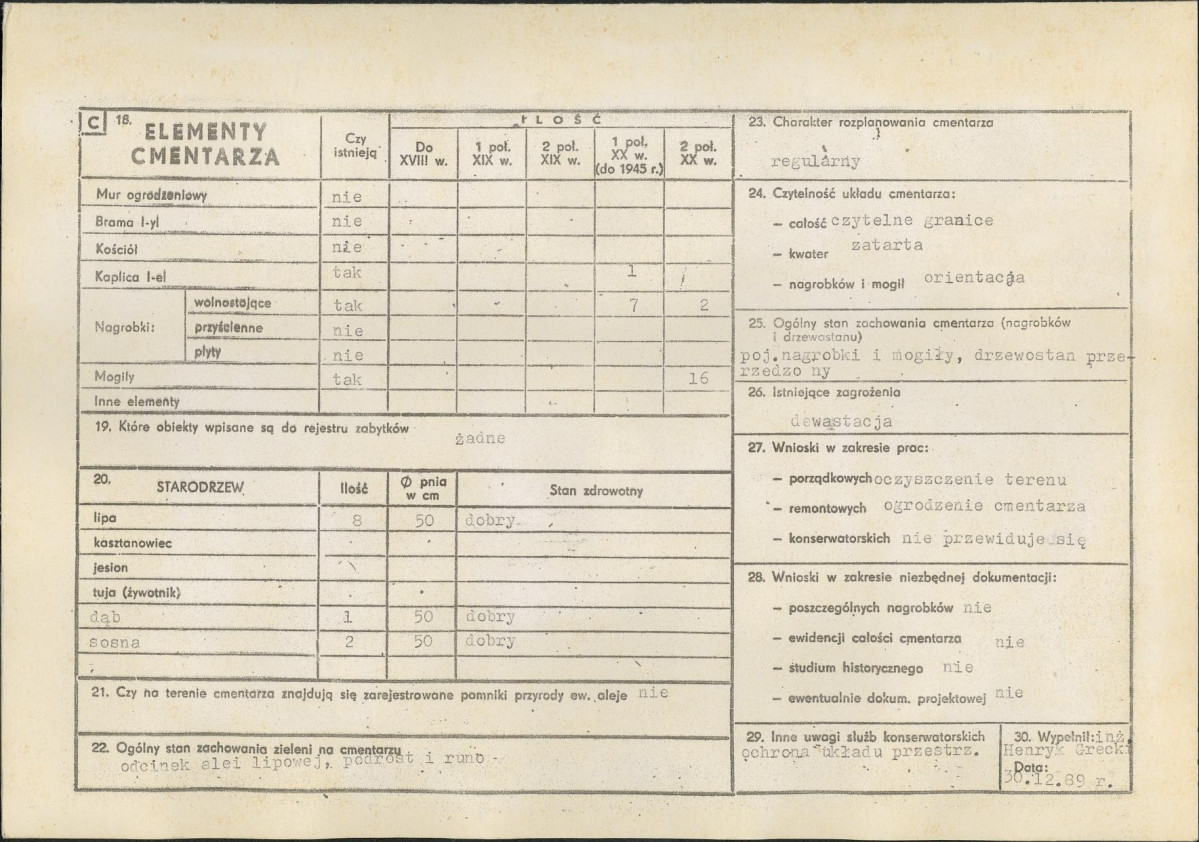 C 18. ELEMENTY CMENTARZA
Czy istnieją
ILOŚĆ
Do XVIII w.
1 poł. XIX w.
2 poł. XIX w.
1 poł. XX w. (do 1945 r.)
2 poł. XX w.
Mur ogrodzeniowy nie
Brama I-yl nie
Kościół nie
Kaplica I-el tak 1
Nagrobki:
wolnostojące tak 7 2
przyścienne nie
płyty nie
Mogiły tak 16
Inne elementy
19. Które obiekty wpisane są do rejestru zabytków żadne
20. STARODRZEW Ilość Ø pnia w cm Stan zdrowotny
lipa 8 50 dobry
kasztanowiec
jesion
tuja (żywotnik)
dąb 1 50 dobry
sosna 2 50 dobry
21. Czy na terenie cmentarza znajdują się zarejestrowane pomniki przyrody ew. aleje nie
22. Ogólny stan zachowania zieleni na cmentarzu
odcinek alei lipowej, podrost i runo
23. Charakter rozplanowania cmentarza
regularny
24. Czytelność układu cmentarza:
– całość czytelne granice
– kwater zatarta
– nagrobków i mogił orientacja
25. Ogólny stan zachowania cmentarza (nagrobków
i drzewostanu)
poj.nagrobki i mogiły, drzewostan prze-
rzedzo ny
26. Istniejące zagrożenia
dewastacja
27. Wnioski w zakresie prac:
– porządkowych oczyszczenie terenu
– remontowych ogrodzenie cmentarza
– konserwatorskich nie przewiduje się
28. Wnioski w zakresie niezbędnej dokumentacji:
– poszczególnych nagrobków nie
– ewidencji całości cmentarza nie
– studium historycznego nie
– ewentualnie dokum. projektowej nie
29. Inne uwagi służb konserwatorskich
ochrona układu przestrz.
30. Wypełnił: inż.
Henryk Grecki
Data:
30.12.89 r.